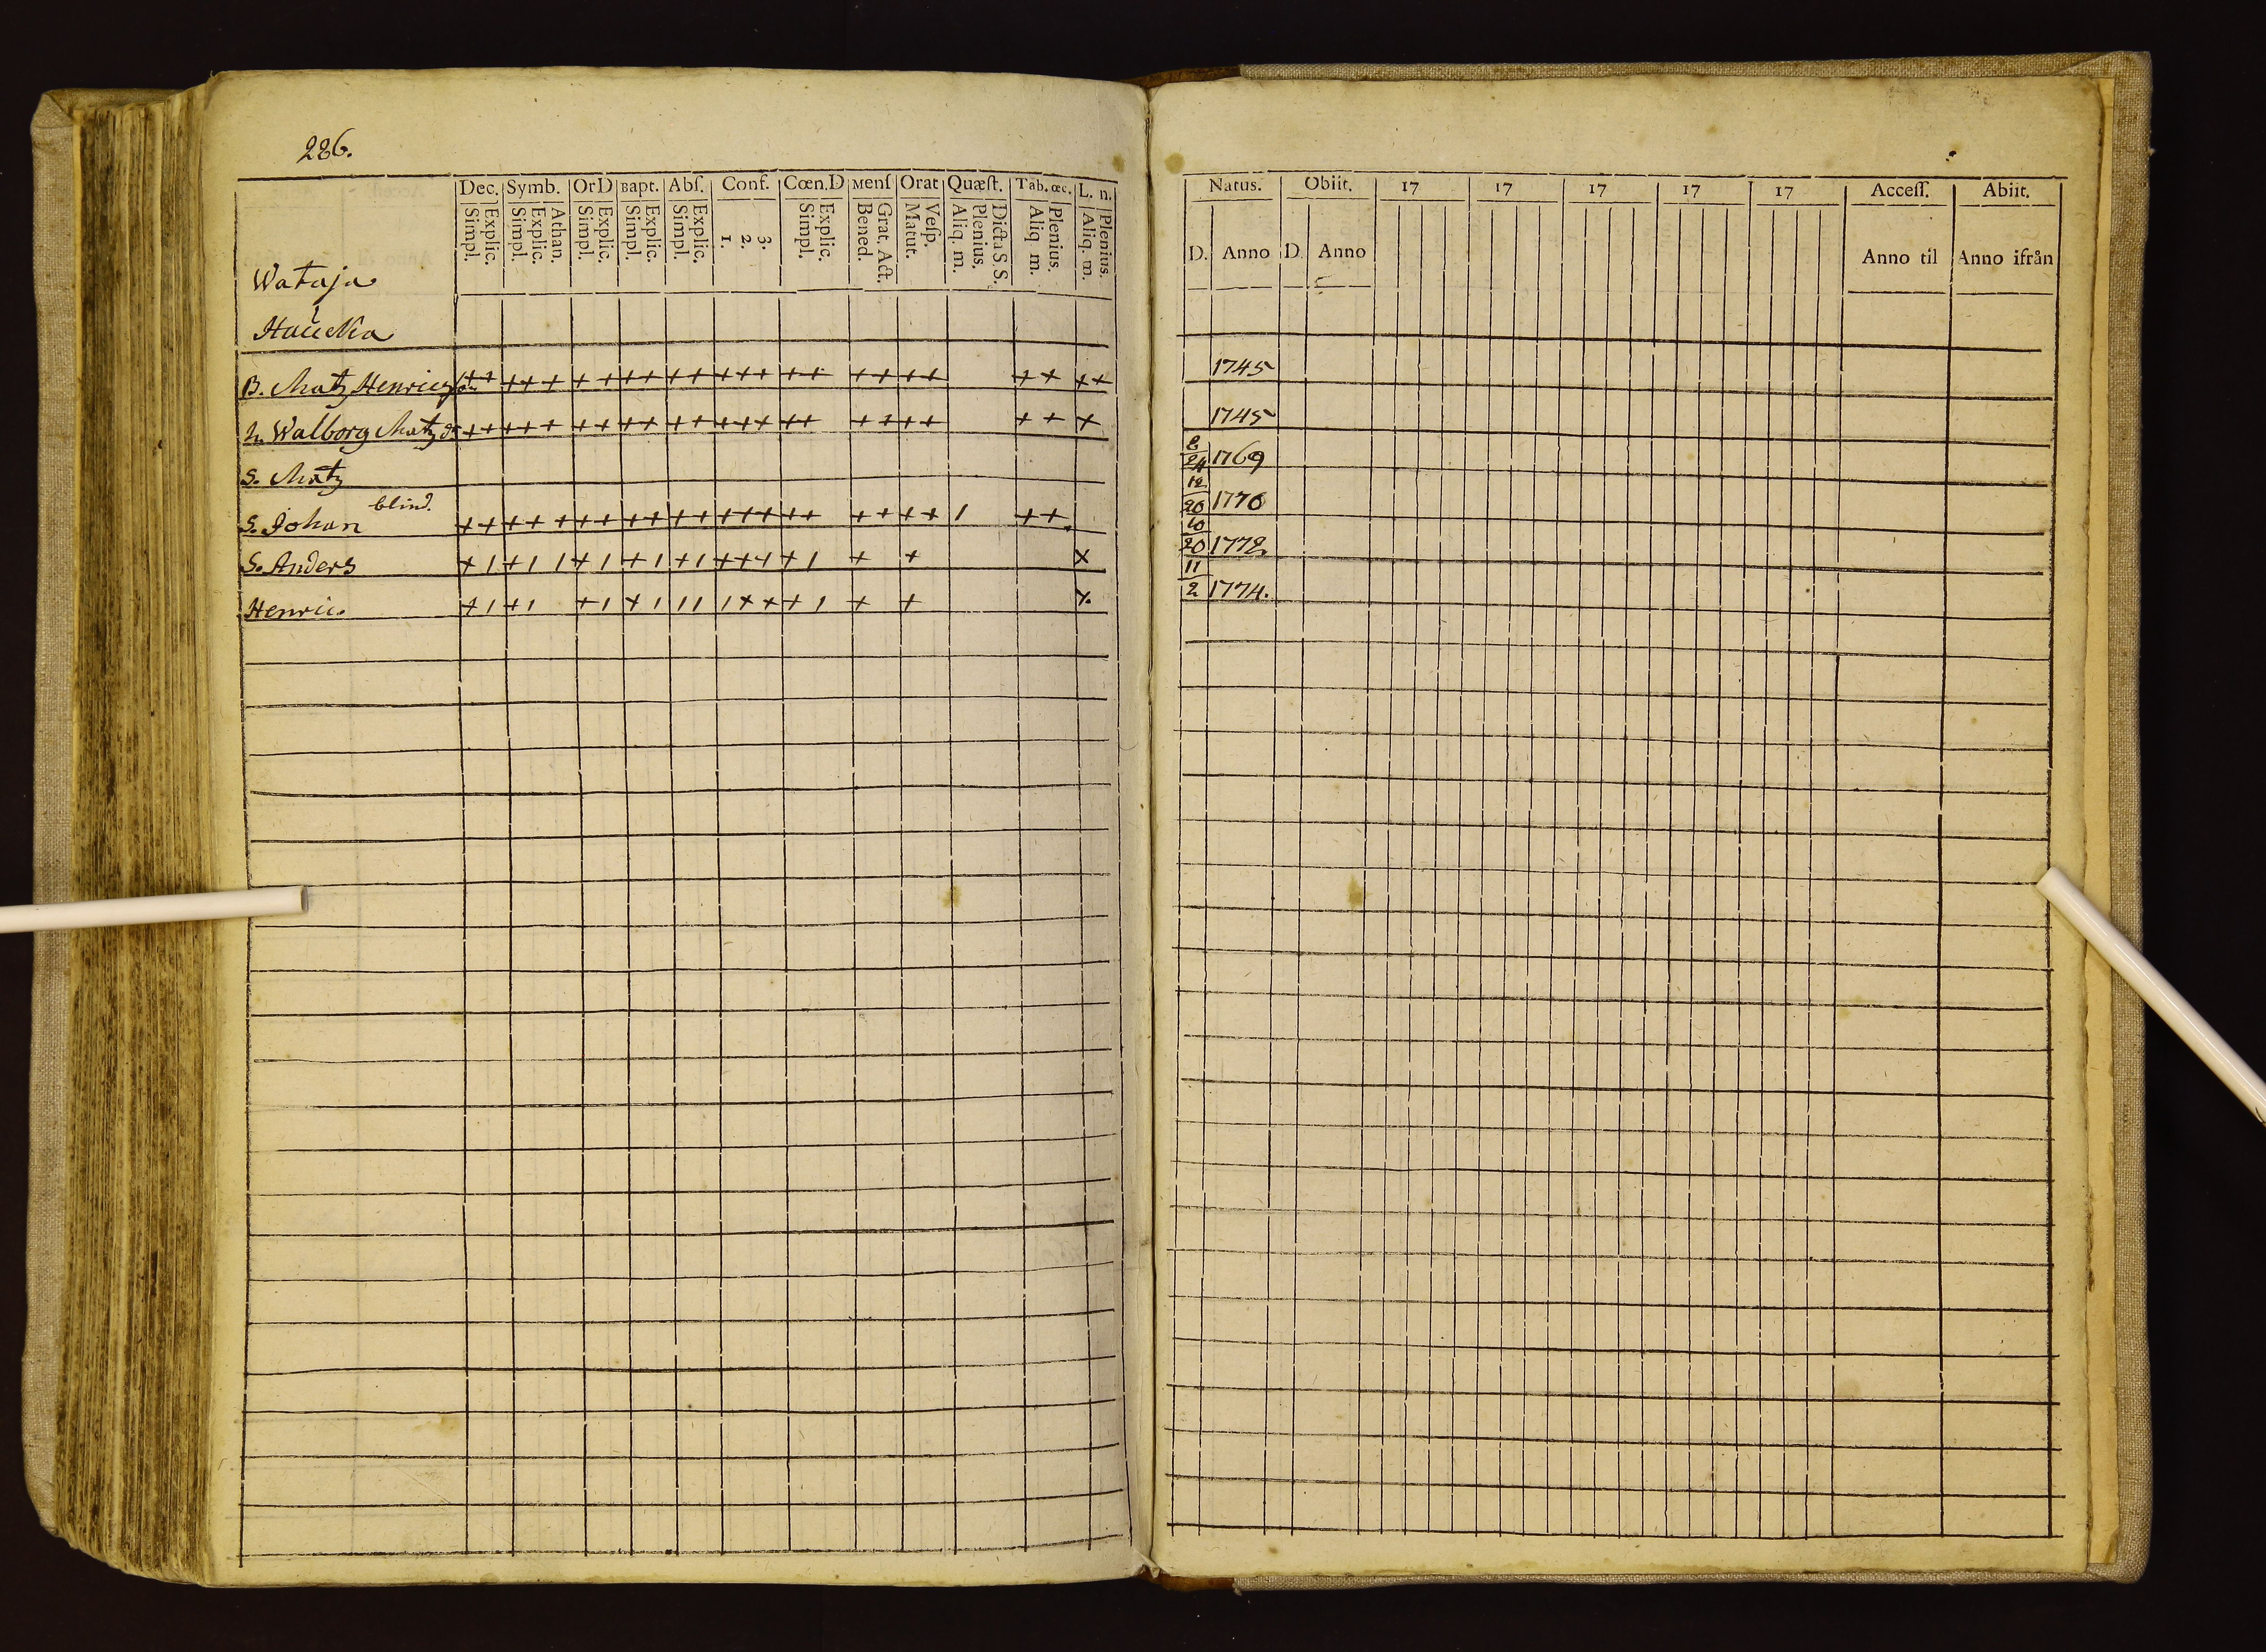 286.
Dec. Symb. OrD Bapt. Abſ. Conf. Cœn.D Menſ Orat Quæſt. Tab. œc. L. n.
Simpl. Explic. Simpl. Explic. Athan. Simpl. Explic. Simpl. Explic. Simpl. Explic. 1. 2. 3. Simpl. Explic. Bened. Grat. Act. Matut. Veſp. Aliq. m. Plenius. Dicta S. S. Aliq m. Plenius. Aliq. m. Plenius.
Wataja
B. Matz Henricsson ++ +++ ++ ++ ++ +++ ++ ++ ++ ++ ++
h. Walborg Matzdr ++ +++ ++ ++ ++ +++ ++ ++ ++ ++ +
S. Matz
blind.
S. Johan ++ +++ ++ ++ ++ +++ ++ ++ ++ 1 ++
S. Anders +1 +11 +1 +1 +1 +++ +1 + + x
Henric. +1 +1 +1 +1 11 1++ +1 + + x
Natus. Obiit. 17 17 17 17 17 Acceſſ. Abiit.
D. Anno D. Anno Anno til Anno ifrån
1745
1745
2/24 1769
12/20 1770
10/20 1772
11/2 1774.